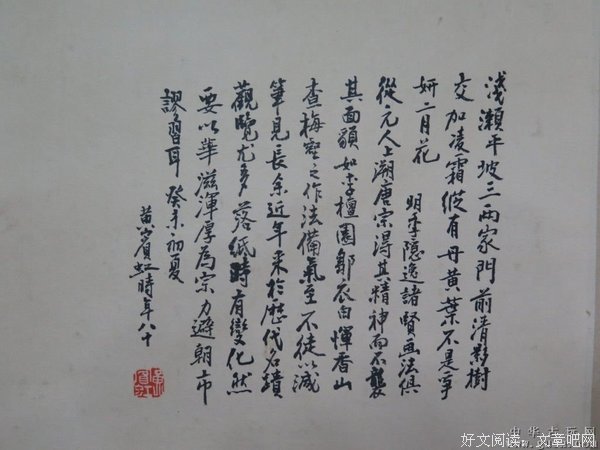 淺瀨平坡三兩家門前清影樹
交加凌霜縱有丹黃葉不是爭
妍二月花 明季隱逸諸賢画法俱
從元人上溯唐宋得其精神而不襲
其面貌如李檀園鄒衣白惲香山
查梅壑之作法備氣至不徒以減
筆見長余近年来於歷代名蹟
觀覽尤多落紙時有變化然
要以華滋渾厚為宗力避朝市
謬習耳 癸未初夏
黃賓虹時年八十
中华古玩网
好文阅读:文章吧网